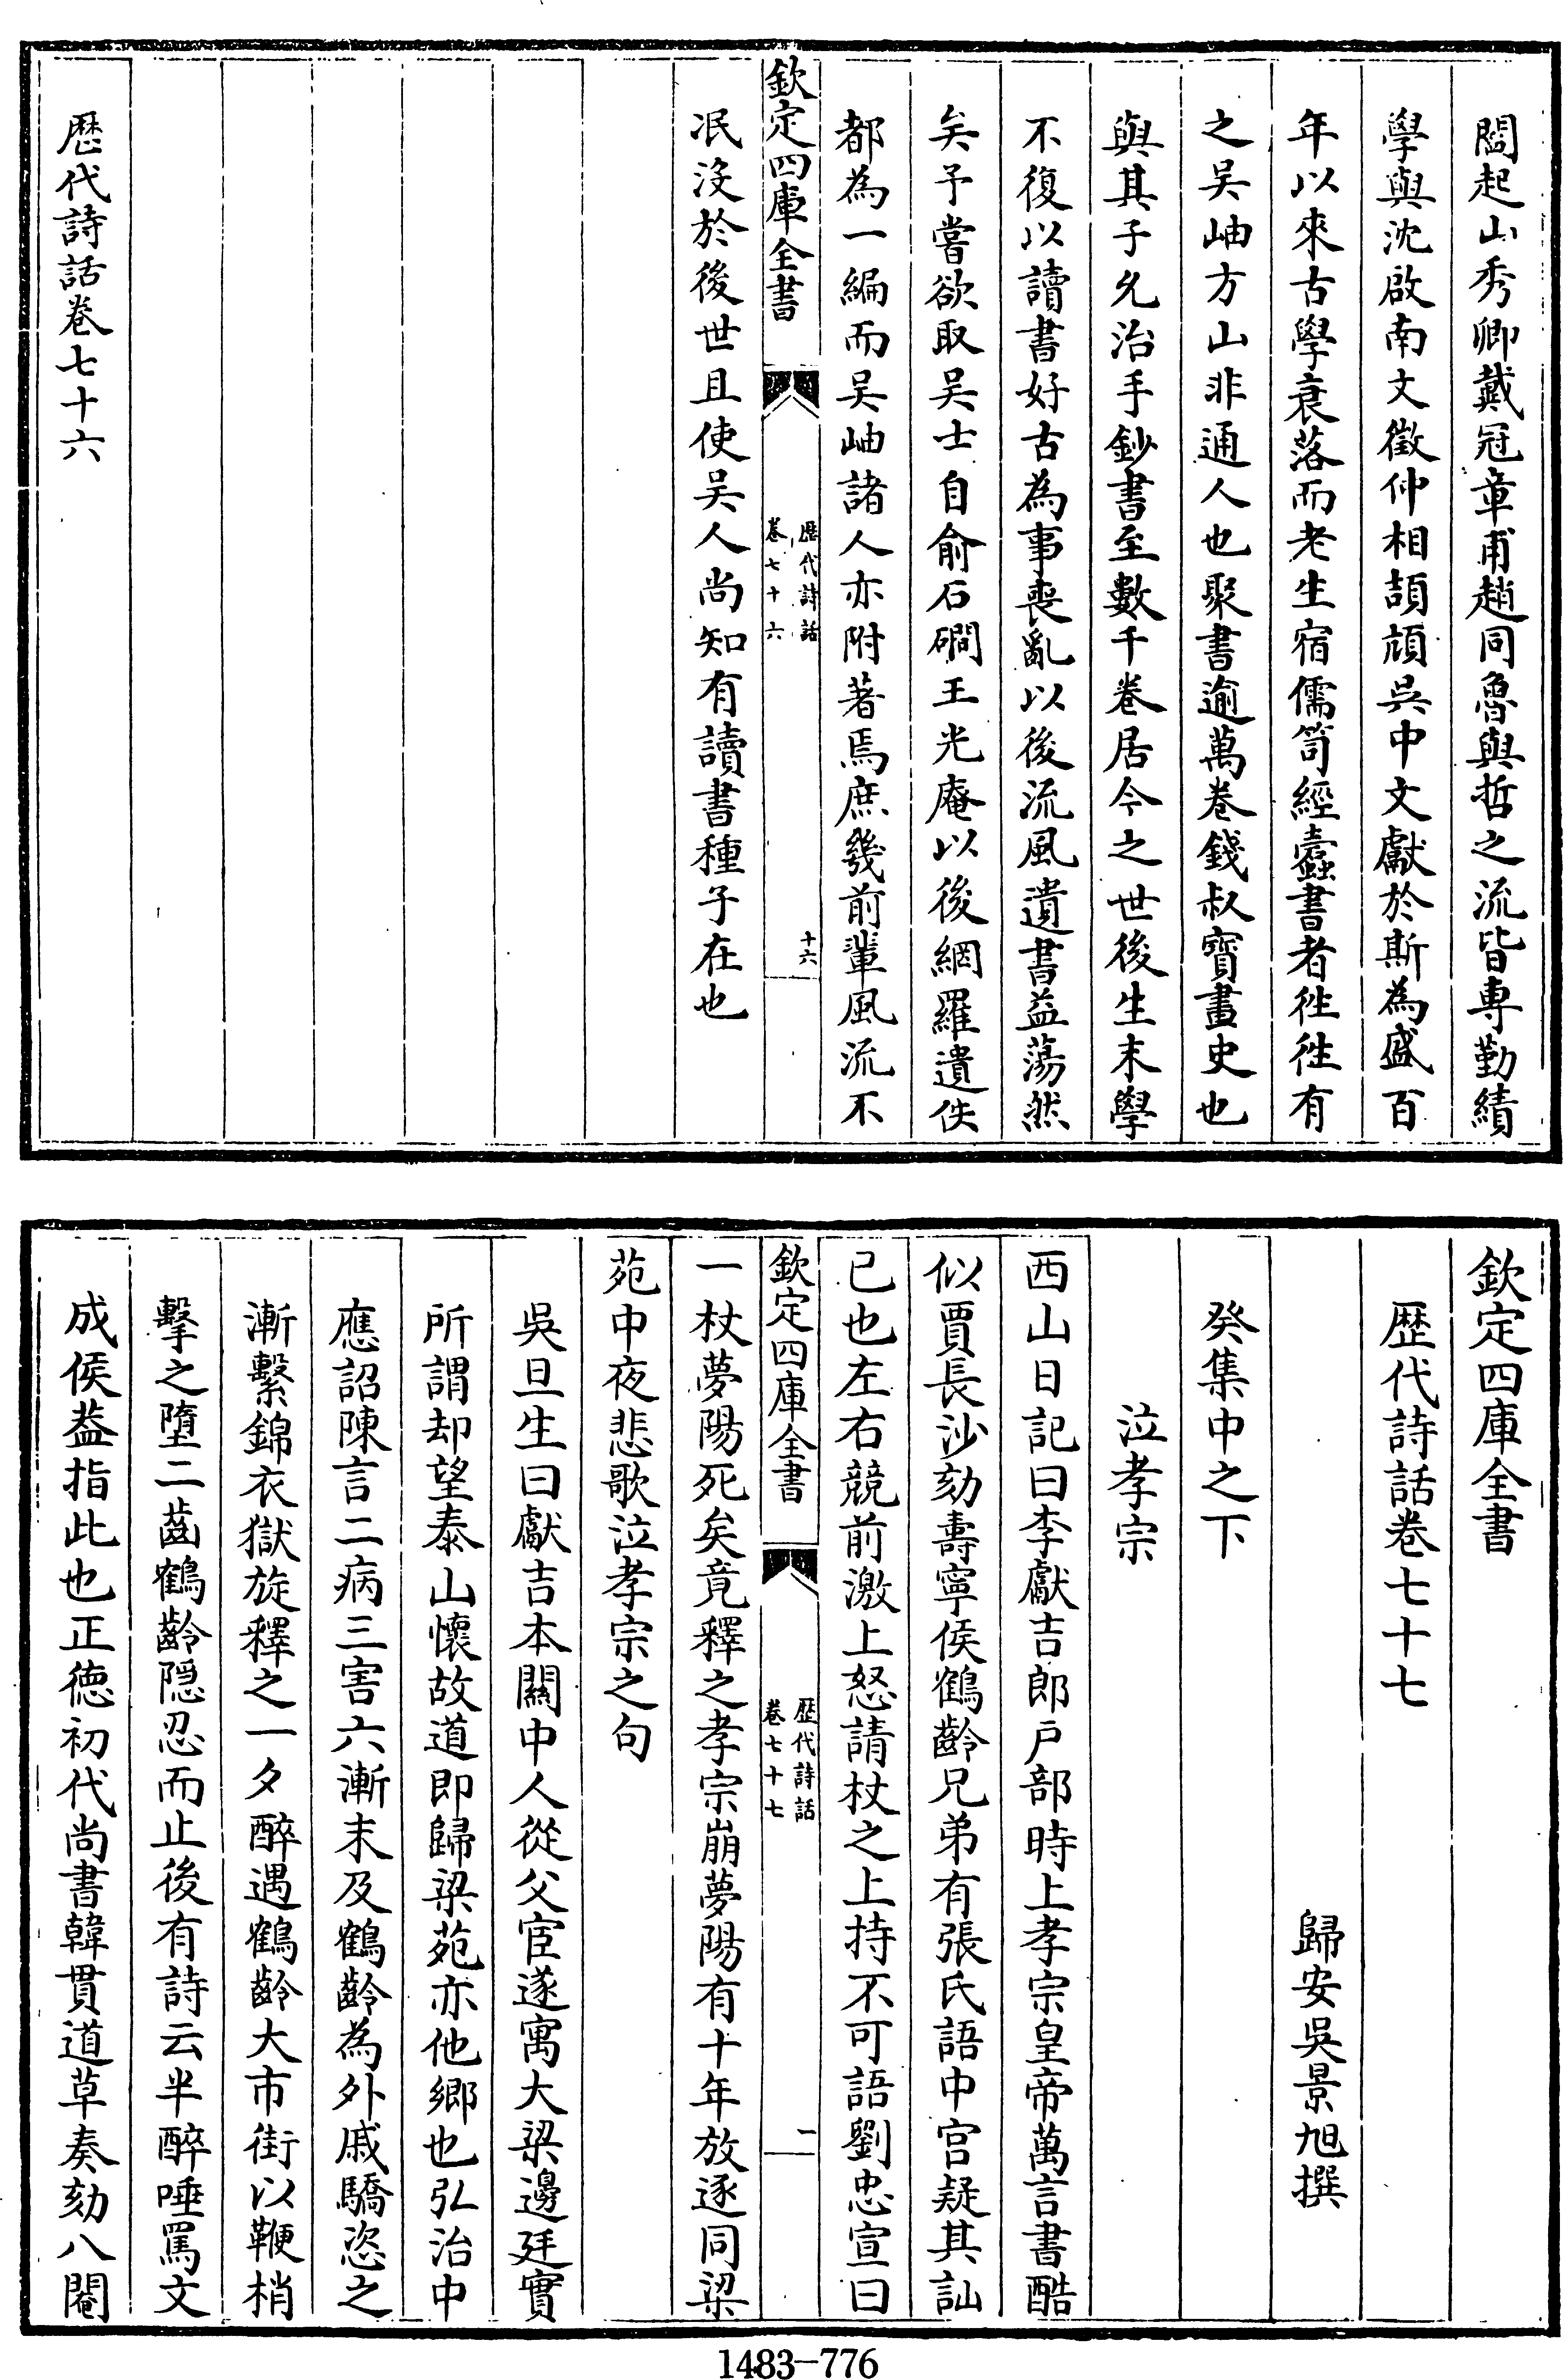 閻起山秀卿戴冠章甫趙同魯與哲之流皆專勤績
學與沈啟南文徵仲相頡頏吳中文獻於斯為盛百
年以來古學衰落而老生宿儒笥經蠧書者徃徃有
之吳岫方山非通人也聚書逾萬卷錢叔寶畫史也
與其子允治手鈔書至數千卷居今之世後生末學
不復以讀書好古為事喪亂以後流風遺書益蕩然
矣予嘗欲取吳士自俞石磵王光庵以後網羅遺佚
都為一編而吳岫諸人亦附著焉庶幾前輩風流不
欽定四庫全書
歷代詩話
卷七十六
十六
泯沒於後世且使吳人尚知有讀書種子在也
歷代詩話卷七十六
欽定四庫全書
歷代詩話卷七十七
歸安吳景旭撰
癸集中之下
泣孝宗
西山日記曰李獻吉郎戶部時上孝宗皇帝萬言書酷
似賈長沙劾壽寧侯鶴齡兄弟有張氏語中宮疑其訕
已也左右競前激上怒請杖之上持不可語劉忠宣曰
欽定四庫全書
歷代詩話
卷七十七
一
一杖夢陽死矣竟釋之孝宗崩夢陽有十年放逐同梁
苑中夜悲歌泣孝宗之句
吳旦生曰獻吉本關中人從父宦遂寓大梁邊廷實
所謂却望泰山懷故道即歸梁苑亦他鄉也弘治中
應詔陳言二病三害六漸末及鶴齡為外戚驕恣之
漸繫錦衣獄旋釋之一夕醉遇鶴齡大市街以鞭梢
擊之墮二齒鶴齡隱忍而止後有詩云半醉唾罵文
成侯葢指此也正德初代尚書韓貫道草奏劾八閹
1483-776